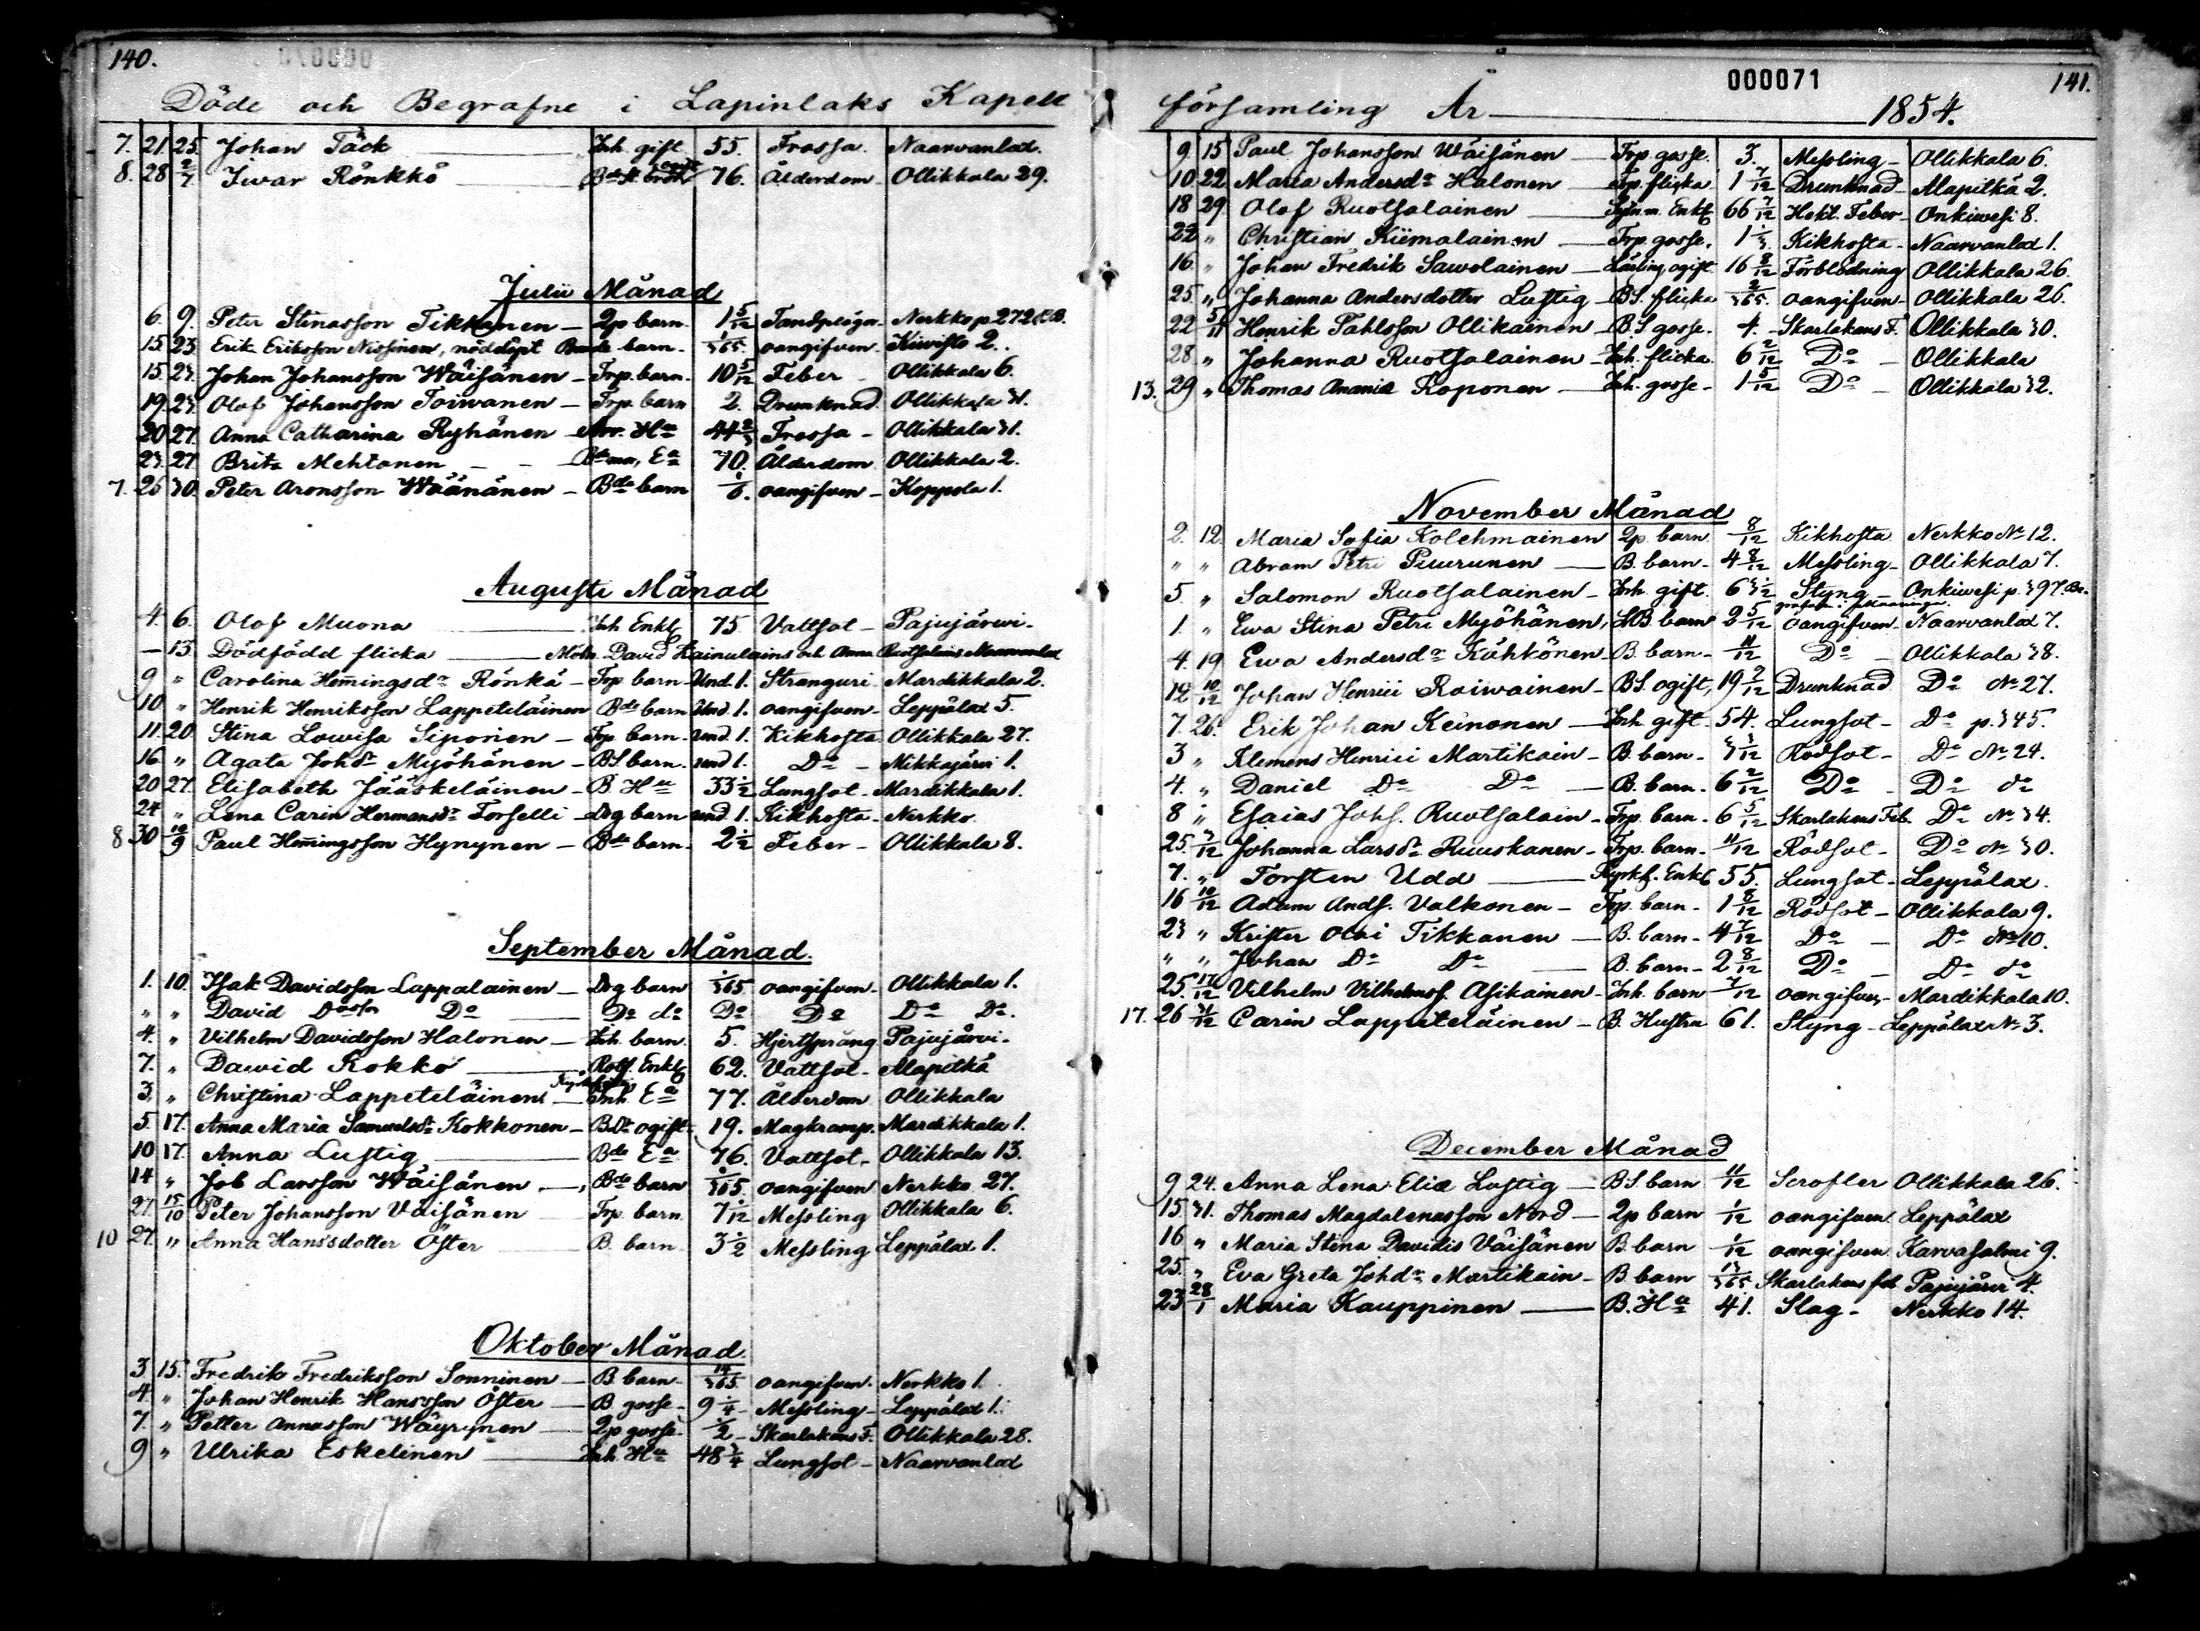 140.
Döde och Begrafne i Lapinlaks Kapell
7. 21 25 Johan Täck Inh. gift 55. Frossa. Naarvanlax.
8. 28 2/7 Ivar Rönkkö 76. Ålderdom Ollikkala 29.
Julii Månad
6. 9. Peter Stinasson Tikkanen 2p barn. 1 5/12 Tandplågor Nerkko p. 272
15 23 Erik Eriksson Nissinen, nöddöpt Bonde barn. 1/365. oangifven. Kiwisto 2.
15. 23. Johan Johansson Wäisänen Trp. barn. 10 5/12 Feber Ollikkala 6.
19. 23. Olof Johansson Toiwanen Trp. barn 2. Drunknad Ollikkala 31.
20 27. Anna Catharina Ryhänen Hu 44 2/3 Frossa Ollikkala 31.
23. 27 Brita Mehtonen Ea 70. Ålderdom Ollikkala 2.
7. 26 30. Peter Aronsson Wäänänen Bde barn 1/6. oangifven Koppola 1.
Augusti Månad
4. 6. Olof Muona Inh Enkl. 75 Vattsot Pajujärwi
— 13 Dödfödd flicka Modr. David Kainulains och Anna Ruotsalains Naarvanlax
9 " Carolina Hemingsdr Rönkä Trp barn Und. 1. Stranguri Mardikkala 2.
10 " Henrik Henriksson Lappeteläinen Bde barn Und. 1. oangifven Leppälax 5.
11. 20. Stina Lowisa Siponen Trp. barn. und. 1. Kikhosta Ollikkala 27.
16 " Agata Johdr Myöhänen BS barn. und 1. Do Nikkajärvi 1.
20 27. Elisabeth Jääskeläinen B. Hu 33 1/2 Lungsot Mardikkala 1.
24 " Lena Carin Hermansdr Forselli Drg barn und. 1. Kikhosta Nerkko
8 30 10/9 Paul Hemingsson Hynynen Bde barn. 2 1/2 Feber Ollikkala 8.
September Månad.
1. 10. Isak Davidsson Lappalainen Drg barn 1/365 oangifven Ollikkala 1.
" " David Dosson Do Do do Do Do Do Do.
4. " Vilhelm Davidsson Halonen Inh. barn. 5. Hjertsprång Pajujärvi
7. " Dawid Kokko Rotf. Enkl. 62. Vattsot Alapitkä
3. " Christina Lappeteläinen Inh. Ea 77. Ålderdom Ollikkala
5. 17. Anna Maria Samuelsdr Kokkonen B.Dr ogift. 19. Magkramp. Mardikkala 1.
10 17. Anna Lustig Bde Ea 76. Vattsot Ollikkala 13.
14 " Job Larsson Wäisänen Bde barn /365. oangifven Nerkko 27.
27. 15/10 Peter Johansson Väisänen Trp. barn. 7 1/12 Messling Ollikkala 6.
10 27. " Anna Hansdotter Öster B. barn. 3 1/2 Messling Leppälax 1.
Oktober Månad
3 15. Fredrik Fredriksson Sonninen B barn. 14/365. oangifven. Nerkko 1.
4 " Johan Henrik Hansson Öster B. gosse 9 1/4 Messling Leppälax 1.
7 " Petter Annasson Wäyrynen 2p gosse. 1/2 Skarlakans F. Ollikkala 28.
9 " Ulrika Eskelinen Inh. Hu 48 3/4 Lungsot Naarvanlax
000071
141.
församling År 1854.
9 15 Paul Johansson Wäisänen Trp. gosse. 3. Messling Ollikkala 6.
10 22 Maria Andersdr Halonen Trp. flicka 1 7/12 Drunknad Alapitkä 2.
18 29 Olof Ruotsalainen Enkl. 66 7/12 Hekt. Feber Onkiwesi 8.
22 " Christian Kiimalainen Trp. gosse. 1 1/3 Kikhosta Naarvanlax 1.
16. " Johan Fredrik Sawolainen Lärling ogift 16 8/12 Förblödning Ollikkala 26.
25. " Johanna Andersdotter Lustig BS. flicka 2/365. oangifven Ollikkala 26.
22 5/11 Henrik Pahlsson Ollikainen B.S gosse. 4. Skarlakans F. Ollikkala 30.
28 " Johanna Ruotsalainen Inh. flicka 6 2/12 Do Ollikkala
13. 29 " Thomas Ananiæ Koponen Inh. gosse 1 5/12 Do Ollikkala 32.
November Månad
2. 12. Maria Sofia Kolehmainen 2p. barn. 8/12 Kikhosta Nerkko No 12.
" " Abram Petri Puurunen B. barn 4 8/12 Messling Ollikkala 7.
5. " Salomon Ruotsalainen Inh. gift. 63 1/2 Styng Onkiwesi p. 397.
1. " Ewa Stina Petri Myöhänen, SB barn 2 5/12 oangifven Naarvanlax 7.
4. 19 Ewa Andersdr Kähkönen B. barn 11/12 Do Ollikkala 38.
12 10/12 Johan Henrici Roiwainen BS. ogift, 19 2/12 Drunknad Do No 27.
7. 26. Erik Johan Keinonen Inh. gift 54. Lungsot Do p. 345.
3 " Klemens Henrici Martikain B. barn 3 3/12 Rödsot Do No 24.
4. " Daniel Do Do B. barn. 6 2/12 Do Do do
8 " Esaias Johs. Ruotsalain Trp. barn. 6 5/12 Skarlakans Feb. Do No 34.
25. 3/12 Johanna Larsdr Ruuskanen Trp. barn. 11/12 Rödsot Do No 30.
7. " Torsten Udd Kyrkf. Enkl. 55. Lungsot Leppälax.
16 10/12 Adam Ands. Valkonen Trp. barn 1 8/12 Rödsot Ollikkala 9.
23 " Krister Olai Tikkanen B. barn 4 7/12 Do Do No 10.
" " Johan Do Do B. barn 2 8/12 Do Do do
25. 17/12 Vilhelm Vilhelmss. Asikainen Inh. barn 7/12 oangifven Mardikkala 10.
17. 26 31/12 Carin Lappeteläinen B. Hustru 61. Styng Leppälax No 3.
December Månad
9 24. Anna Lena Eliæ Lustig BS barn 11/12 Scrofler Ollikkala 26.
15 31. Thomas Magdalenasson Nord 2p barn 1/12 oangifven Leppälax
16 " Maria Stina Davidis Väisänen B. barn 1/12 oangifven Karvasalmi 9.
25. " Eva Greta Johdr Martikain B. barn 13/365. Skarlakans feb Pajujärvi 4.
23 28/1 Maria Kauppinen B. Hu 41. Slag Nerkko 14.